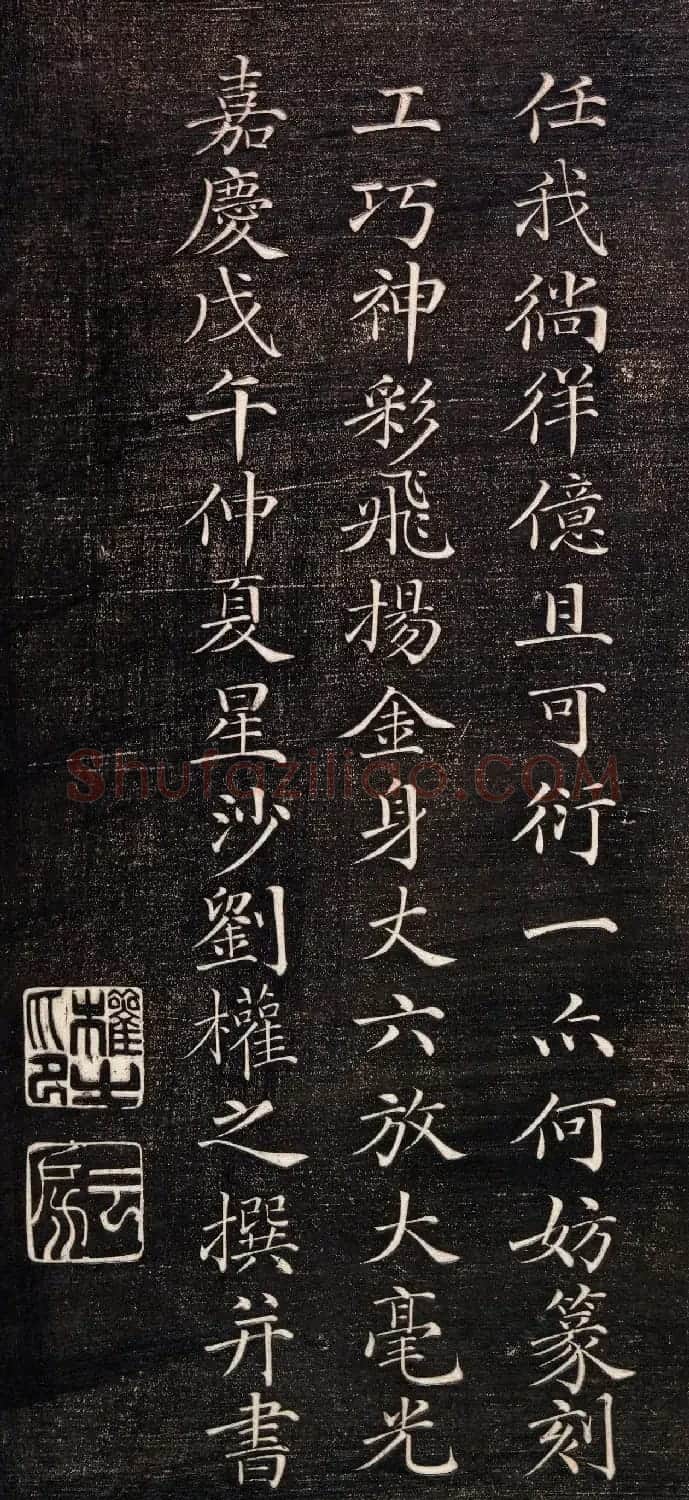 任我徜徉億且可衍一亦何妨篆刻
工巧神彩飛揚金身丈六放大毫光
嘉慶戊午仲夏星沙劉權之撰并書
權之
Shufaziliao.COM